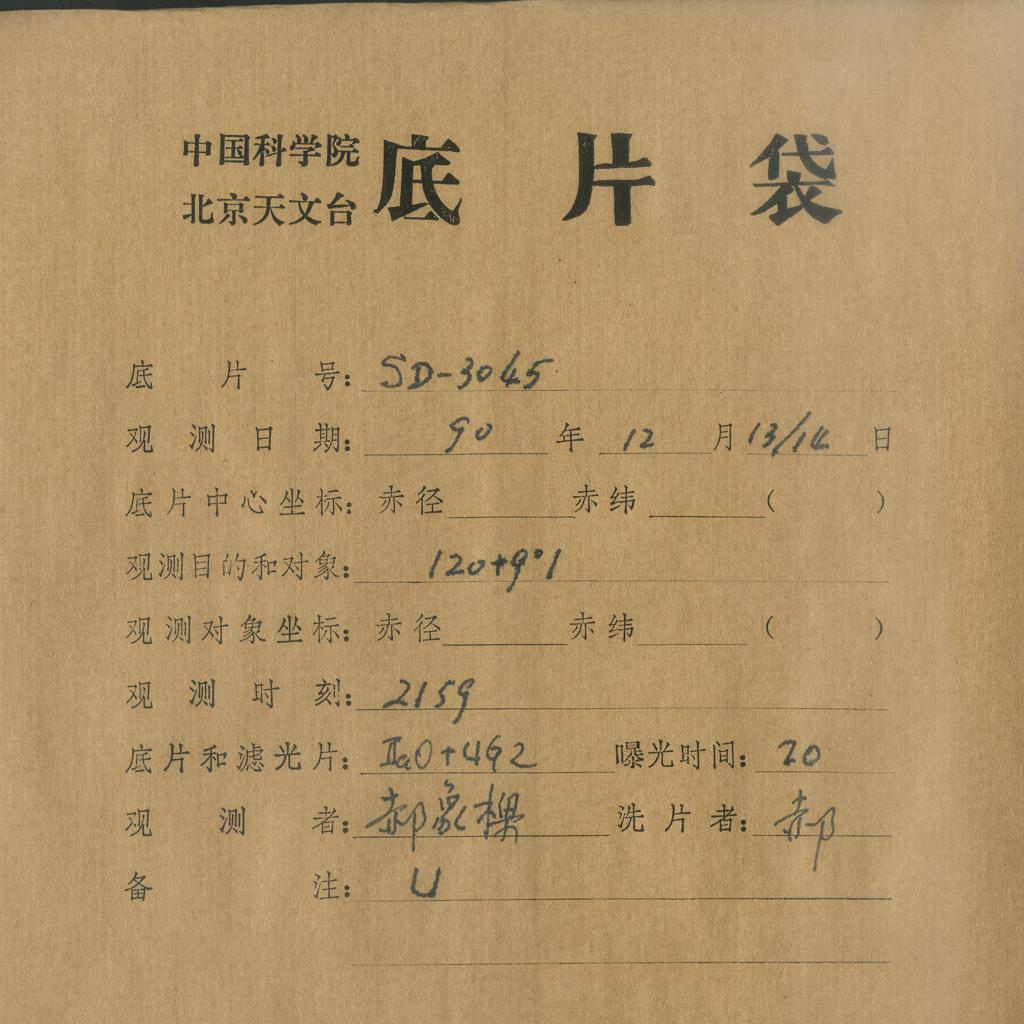 中国科学院
北京天文台
底片袋
底片号：SD-3045
观测日期：90年12月13/14日
底片中心坐标：赤径 赤纬 （ ）
观测目的和对象：120+9°1
观测对象坐标：赤径 赤纬 （ ）
观测时刻：2159
底片和滤光片：IIaO+UG2 曝光时间：20
观测者：郝象樑 洗片者：郝
备注：U